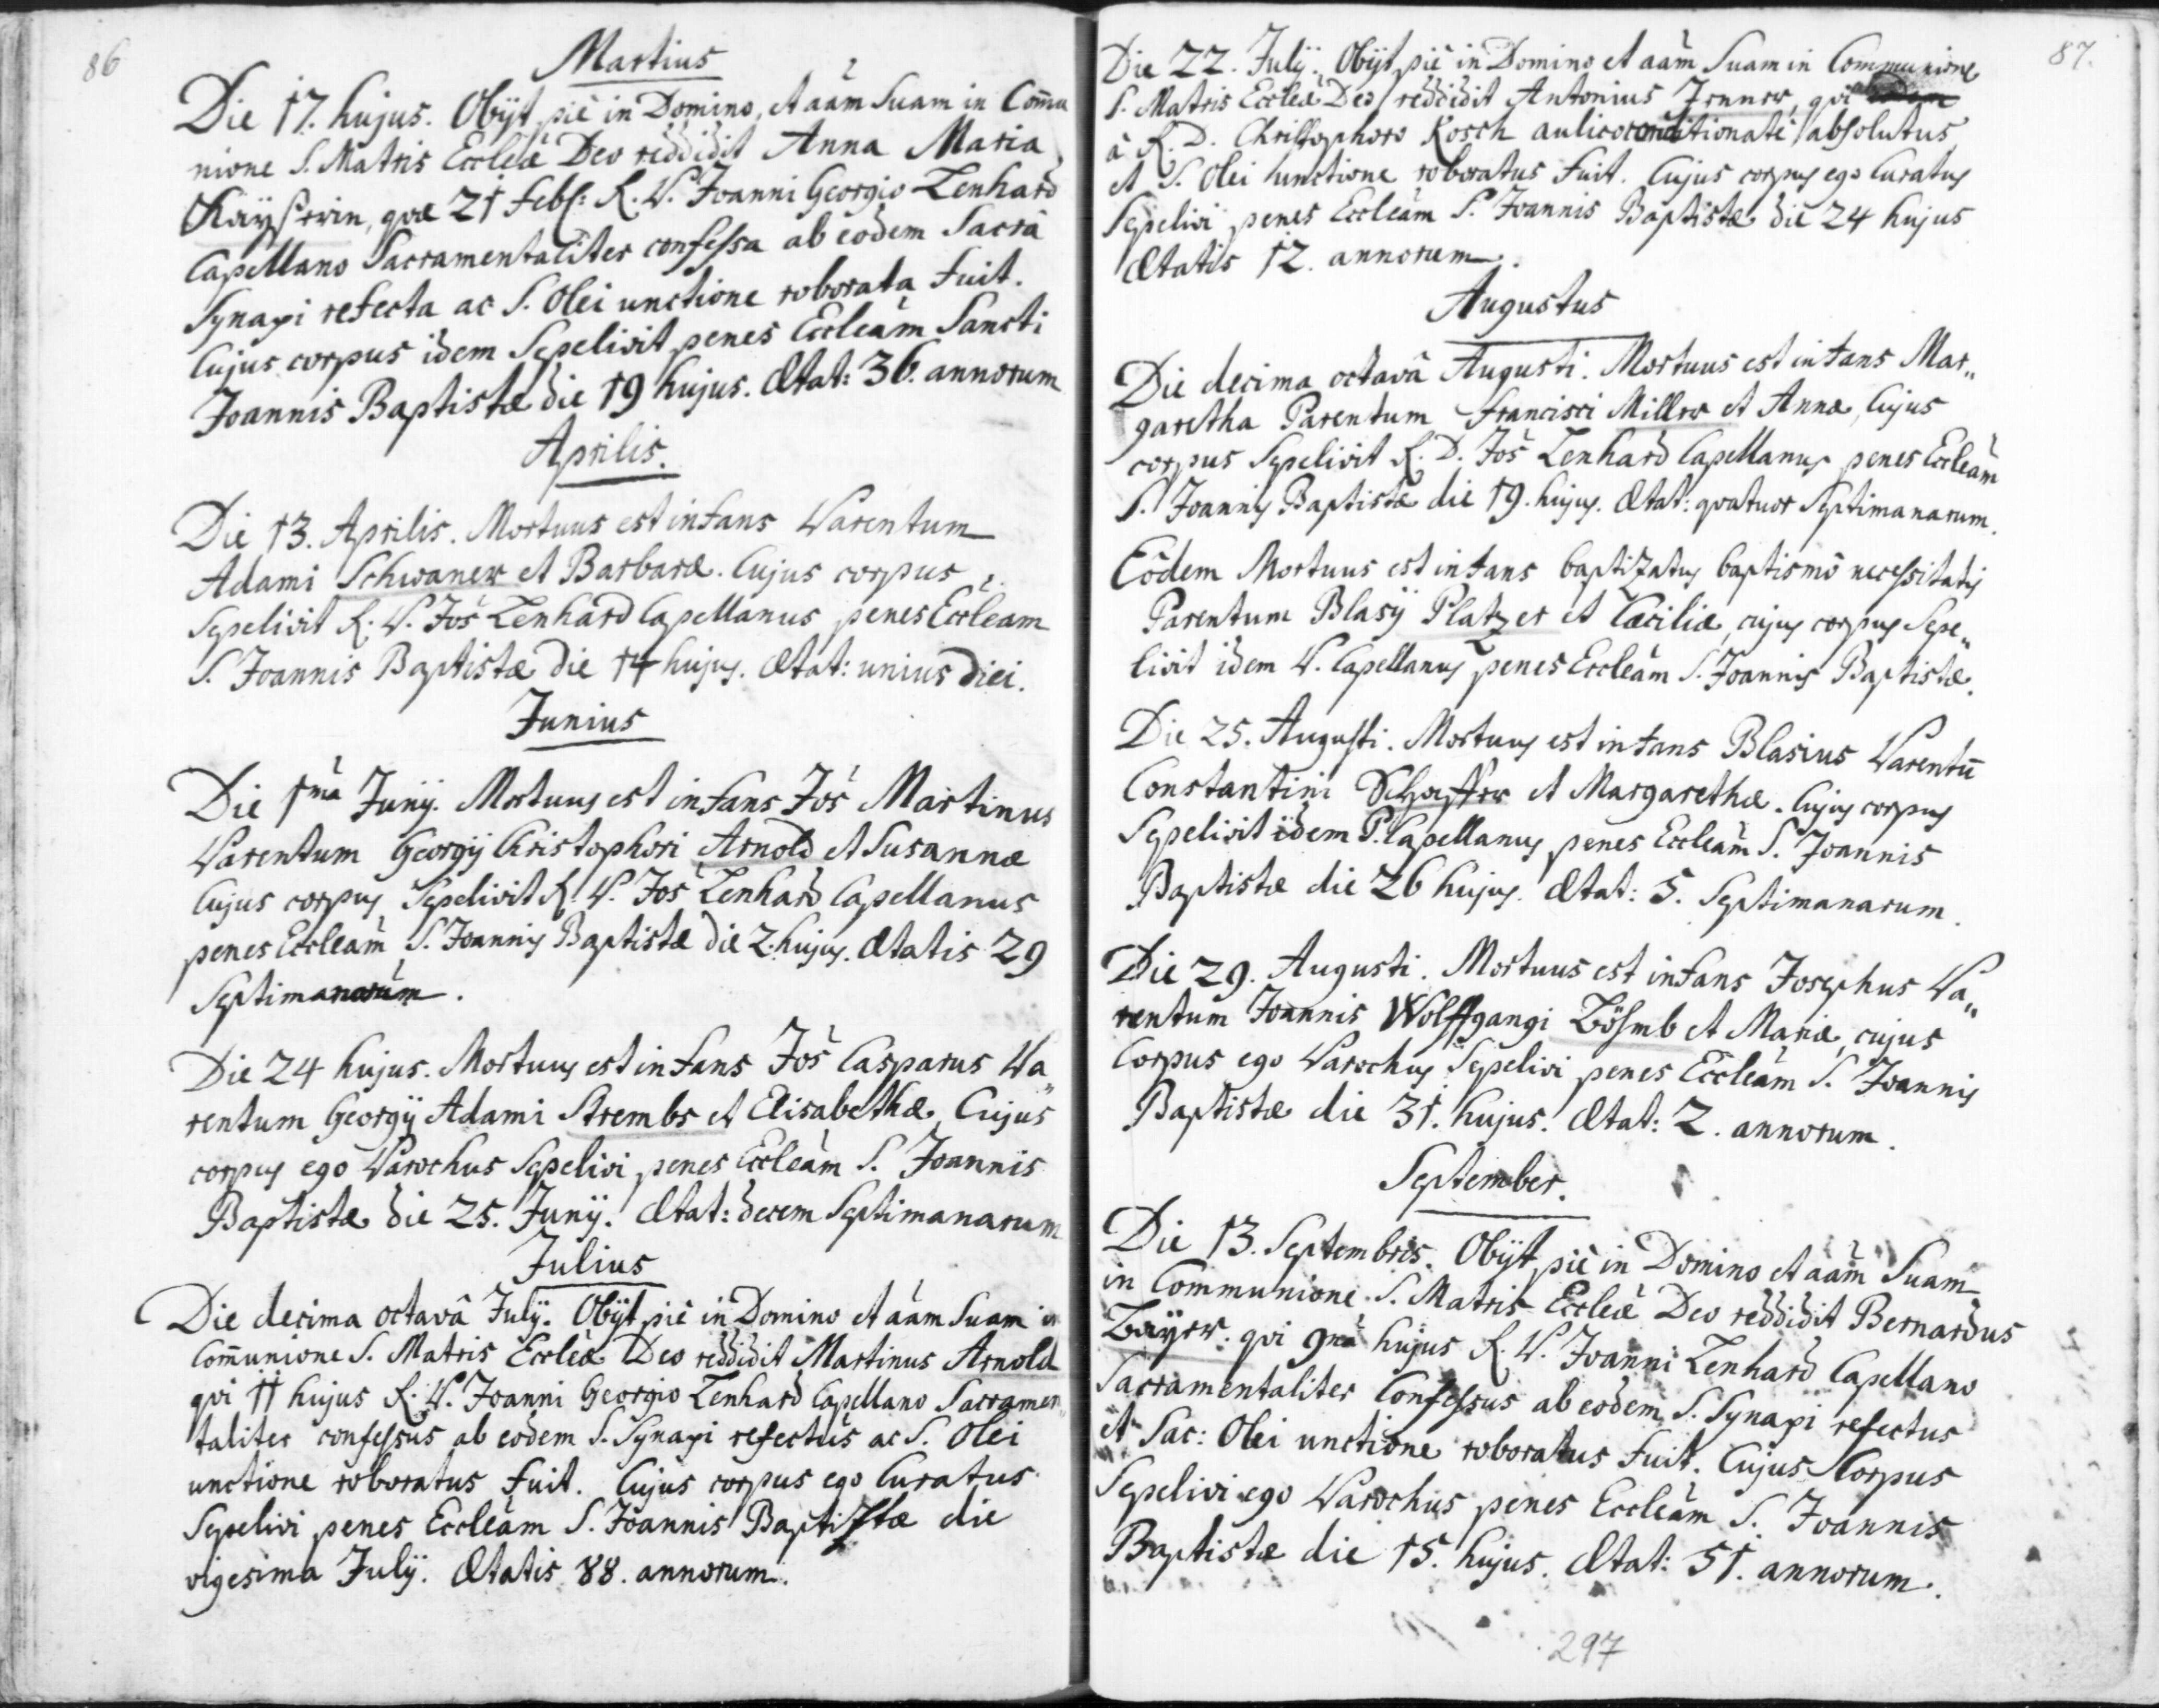 86
Martius
Die 17. hujus. Obijt piè in Domino, et aãm Suam in Com̃u
nione S. Matris Eccleæ Deo reddidit Anna Maria
Kaÿserin, qvæ 21 Feb: R. P. Joanni Georgio Lenhard
Capellano Sacramentaliter confessa ab eodem Sacrâ
Synaxi refecta ac S. Olei unctione roborata fuit.
Cujus corpus idem Sepelivit penes Eccleam Sancti
Joannis Baptistæ die 19 hujus. Ætat: 36. annorum
Aprilis.
Die 13. Aprilis. Mortuus est infans Parentum
Adami Schwaner et Barbaræ. Cujus corpus
Sepelivit R. P. Joẽs Lenhard Capellanus penes Eccleam
S. Joannis Baptistæ die 14 hujus. Ætat: unius diei.
Junius
Die 1mâ Junÿ. Mortuus est infans Joẽs Martinus
Parentum Georgÿ Christophori Arnold et Susannæ
Cujus corpus Sepelivit R. P. Joẽs Lenhard Capellanus
penes Eccleam S. Joannis Baptistæ die 2. hujus. Ætatis 29
Septimanarum.
Die 24 hujus. Mortuus est infans Joẽs Casparus Pa„
rentum Georgÿ Adami Strembs et Elisabethæ, Cujus
corpus ego Parochus Sepelivi penes Eccleam S. Joannis
Baptistæ die 25. Junÿ. Ætat: decem Septimanarum
Julius
Die decima octavâ Julÿ. Obijt piè in Domino et aãm Suam in
Com̃unione S. Matris Eccleæ Deo reddidit Martinus Arnold
qvi 11 hujus R. P. Joanni Georgio Lenhard Capellano Sacramen„
taliter confessus ab eodem S. Synaxi refectus ac S. Olei
unctione roboratus fuit. Cujus corpus ego Curatus
Sepelivi penes Eccleam S. Joannis Baptistæ die
vigesima Julÿ. Ætatis 88. annorum.
87.
Die 22. Julÿ. Obijt piè in Domino et aãm Suam in Communione
S. Matris Eccleæ Deo reddidit Antonius Jenner, qvi
à R. D. Christophoro Kosch aulico conditionatè absolutus
et S. Olei unctione roboratus fuit. Cujus corpus ego Curatus
Sepelivi penes Eccleam S. Joannis Baptistæ die 24 hujus
Ætatis 12. annorum.
Augustus
Die decima octavâ Augusti. Mortuus est infans Mar„
garetha Parentum Francisci Miller et Annæ, Cujus
corpus Sepelivit R. D. Joẽs Lenhard Capellanus penes Eccleam
S. Joannis Baptistæ die 19. hujus. Ætat: qvatuor Septimanarum.
Eôdem Mortuus est infans baptizatus baptismô necessitatis
Parentum Blasÿ Platzer et Cæciliæ, cujus corpus Sepe„
livit idem P. Capellanus penes Eccleam S. Joannis Baptistæ.
Die 25. Augusti. Mortuus est infans Blasius Parentũ
Constantini Schaffer et Margarethæ. Cujus corpus
Sepelivit idem P. Capellanus penes Eccleam S. Joannis
Baptistæ die 26 hujus. Ætat: 5. Septimanarum.
Die 29. Augusti. Mortuus est infans Josephus Pa„
rentum Joannis Wolffgangi Bösmb et Mariæ, cujus
Corpus ego Parochus Sepelivi penes Eccleam S. Joannis
Baptistæ die 31. hujus. Ætat: 2. annorum.
September.
Die 13. Septembris. Obijt piè in Domino et aãm Suam
in Communione S. Matris Eccleæ Deo reddidit Bernardus
Baÿer. qvi 9nâ hujus R. P. Joanni Lenhard Capellano
Sacramentaliter Confessus ab eodem S. Synaxi refectus
et Sac: Olei unctione roboratus fuit. Cujus Corpus
Sepelivi ego Parochus penes Eccleam S. Joannis
Baptistæ die 15. hujus. Ætat: 51. annorum.
297